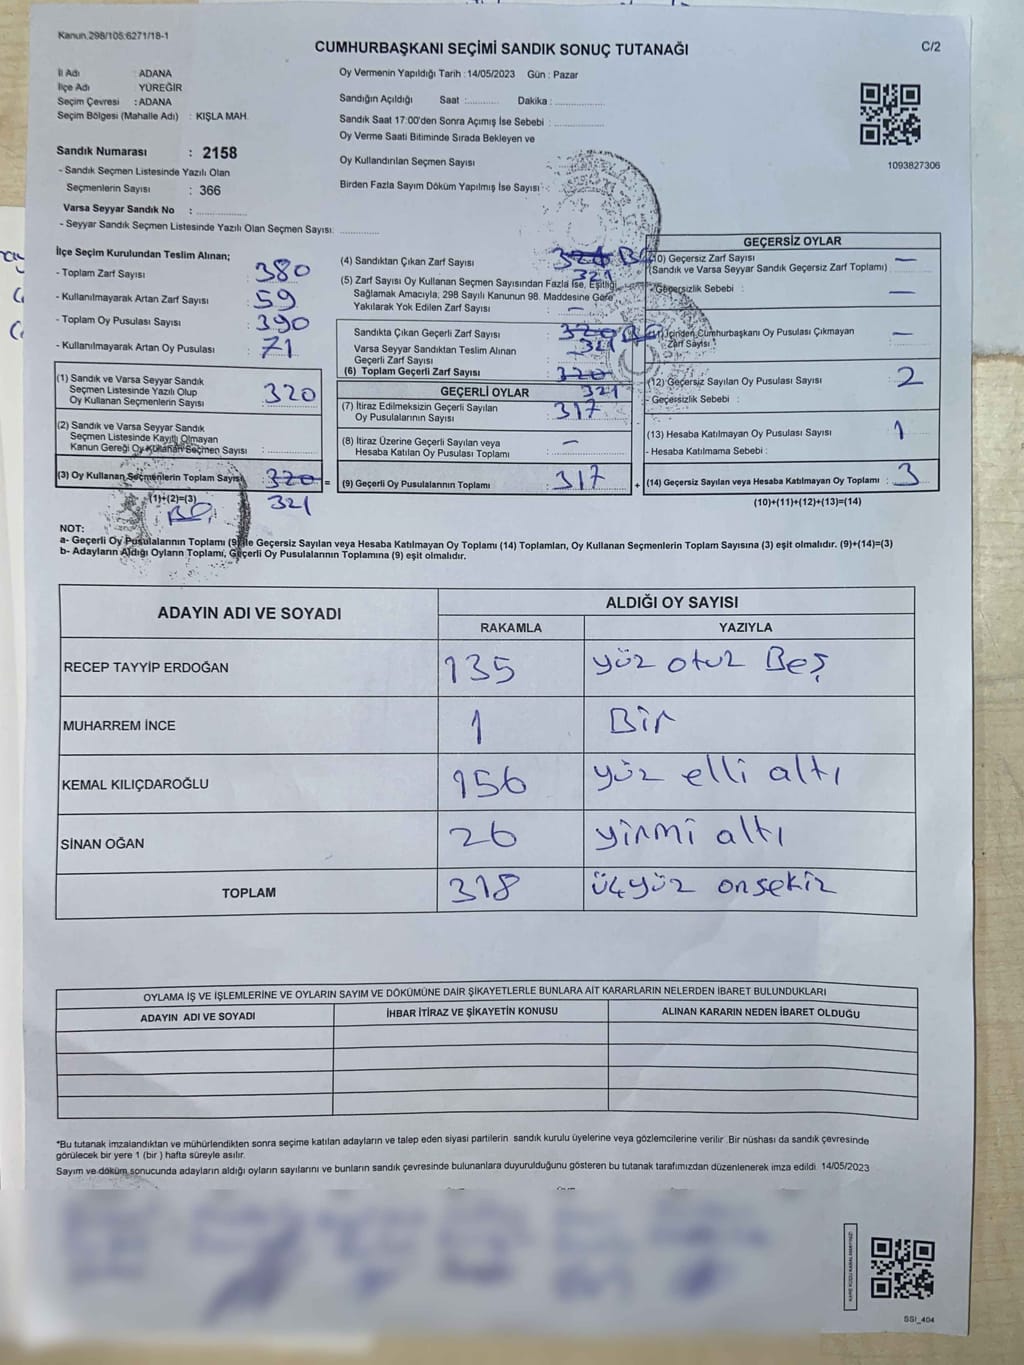 Kanun.298/105:6271/18-1
CUMHURBAŞKANI SEÇİMİ SANDIK SONUÇ TUTANAĞI
C/2
İl Adı : ADANA
İlçe Adı YÜREĞİR
Seçim Çevresi : ADANA
Seçim Bölgesi (Mahalle Adı) : KIŞLA MAH.
Sandık Numarası : 2158
- Sandık Seçmen Listesinde Yazılı Olan
Seçmenlerin Sayısı : 366
Varsa Seyyar Sandık No : ..............
- Seyyar Sandık Seçmen Listesinde Yazılı Olan Seçmen Sayısı: ............
Oy Vermenin Yapıldığı Tarih : 14/05/2023 Gün : Pazar
Sandığın Açıldığı Saat :.......... Dakika : ...............
Sandık Saat 17:00'den Sonra Açımış İse Sebebi : ...............
Oy Verme Saati Bitiminde Sırada Bekleyen ve
Oy Kullandırılan Seçmen Sayısı
Birden Fazla Sayım Döküm Yapılmış İse Sayısı :
1093827306
İlçe Seçim Kurulundan Teslim Alınan;
- Toplam Zarf Sayısı 380
- Kullanılmayarak Artan Zarf Sayısı 59
- Toplam Oy Pusulası Sayısı : 390
- Kullanılmayarak Artan Oy Pusulası : 71
(1) Sandık ve Varsa Seyyar Sandık
Seçmen Listesinde Yazılı Olup
Oy Kullanan Seçmenlerin Sayısı 320
(2) Sandık ve Varsa Seyyar Sandık
Seçmen Listesinde Kayıtlı Olmayan
Kanun Gereği Oy Kullanan Seçmen Sayısı
(3) Oy Kullanan Seçmenlerin Toplam Sayısı 320 =
(1)+(2)=(3) 321
(4) Sandıktan Çıkan Zarf Sayısı
321
(5) Zarf Sayısı Oy Kullanan Seçmen Sayısından Fazla İse, Eşitliği
Sağlamak Amacıyla, 298 Sayılı Kanunun 98. Maddesine Göre
Yakılarak Yok Edilen Zarf Sayısı : –
Sandıkta Çıkan Geçerli Zarf Sayısı 320
Varsa Seyyar Sandıktan Teslim Alınan 321
Geçerli Zarf Sayısı
(6) Toplam Geçerli Zarf Sayısı 320
GEÇERLİ OYLAR 321
(7) İtiraz Edilmeksizin Geçerli Sayılan
Oy Pusulalarının Sayısı : 317
(8) İtiraz Üzerine Geçerli Sayılan veya
Hesaba Katılan Oy Pusulası Toplamı : –
(9) Geçerli Oy Pusulalarının Toplamı : 317 +
GEÇERSİZ OYLAR
(10) Geçersiz Zarf Sayısı –
(Sandık ve Varsa Seyyar Sandık Geçersiz Zarf Toplamı)
- Geçersizlik Sebebi : –
(11) İçinden Cumhurbaşkanı Oy Pusulası Çıkmayan –
Zarf Sayısı
(12) Geçersiz Sayılan Oy Pusulası Sayısı 2
- Geçersizlik Sebebi :
(13) Hesaba Katılmayan Oy Pusulası Sayısı 1
- Hesaba Katılmama Sebebi :
(14) Geçersiz Sayılan veya Hesaba Katılmayan Oy Toplamı : 3
(10)+(11)+(12)+(13)=(14)
NOT:
a- Geçerli Oy Pusulalarının Toplamı (9) ile Geçersiz Sayılan veya Hesaba Katılmayan Oy Toplamı (14) Toplamları, Oy Kullanan Seçmenlerin Toplam Sayısına (3) eşit olmalıdır. (9)+(14)=(3)
b- Adayların Aldığı Oyların Toplamı, Geçerli Oy Pusulalarının Toplamına (9) eşit olmalıdır.
ADAYIN ADI VE SOYADI ALDIĞI OY SAYISI
RAKAMLA YAZIYLA
RECEP TAYYİP ERDOĞAN 135 yüz otuz Beş
MUHARREM İNCE 1 Bir
KEMAL KILIÇDAROĞLU 156 yüz elli altı
SİNAN OĞAN 26 yirmi altı
TOPLAM 318 üçyüz onsekiz
OYLAMA İŞ VE İŞLEMLERİNE VE OYLARIN SAYIM VE DÖKÜMÜNE DAİR ŞİKAYETLERLE BUNLARA AİT KARARLARIN NELERDEN İBARET BULUNDUKLARI
ADAYIN ADI VE SOYADI İHBAR İTİRAZ VE ŞİKAYETİN KONUSU ALINAN KARARIN NEDEN İBARET OLDUĞU
*Bu tutanak imzalandıktan ve mühürlendikten sonra seçime katılan adayların ve talep eden siyasi partilerin sandık kurulu üyelerine veya gözlemcilerine verilir .Bir nüshası da sandık çevresinde
görülecek bir yere 1 (bir ) hafta süreyle asılır.
Sayım ve döküm sonucunda adayların aldığı oyların sayılarını ve bunların sandık çevresinde bulunanlara duyurulduğunu gösteren bu tutanak tarafımızdan düzenlenerek imza edildi. 14/05/2023
SSI_404